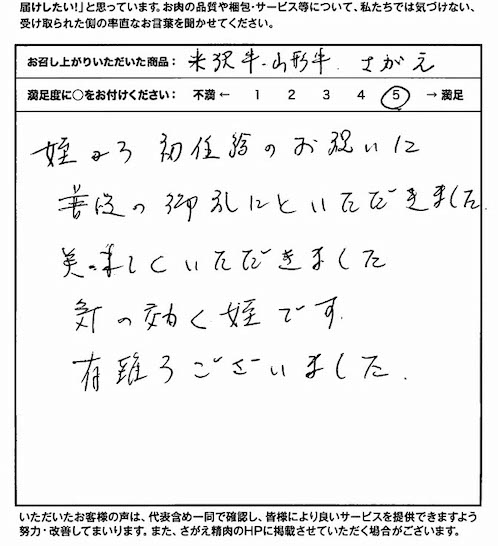 届けしたい!」と思っています。お肉の品質や梱包・サービス等について、私たちでは気づけない、
受け取られた側の率直なお言葉を聞かせてください。
お召し上がりいただいた商品： 米沢牛・山形牛 さがえ
満足度に○をお付けください： 不満 ← 1 2 3 4 5 → 満足
姪から初任給のお祝いに
普段の御礼にといただきました
美味しくいただきました
気の効く姪です
有難うございました.
いただいたお客様の声は、代表含め一同で確認し、皆様により良いサービスを提供できますよう
努力・改善してまいります。また、さがえ精肉のHPに掲載させていただく場合がございます。